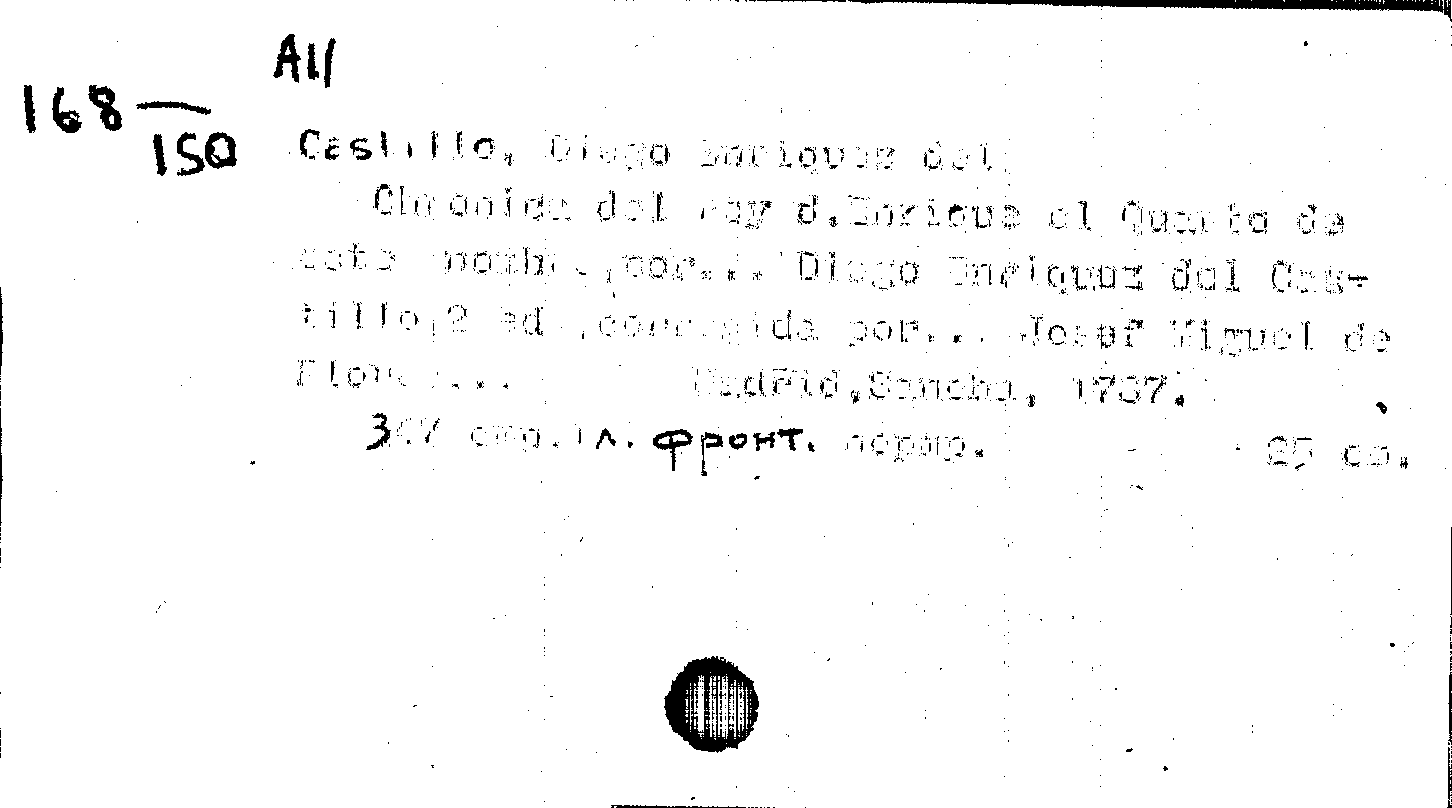 A11
168—
150
Castillo, Diego Enriquez del
Chronica del rey d.Enrique el Quarto de
este nombre,por... Diego Enriquez del Cas-
tillo,2 ed.,corregida por... Josef Miguel de
Flores... Madrid,Sancha, 1787.
347 стр. 1 л. фронт. 25 см.